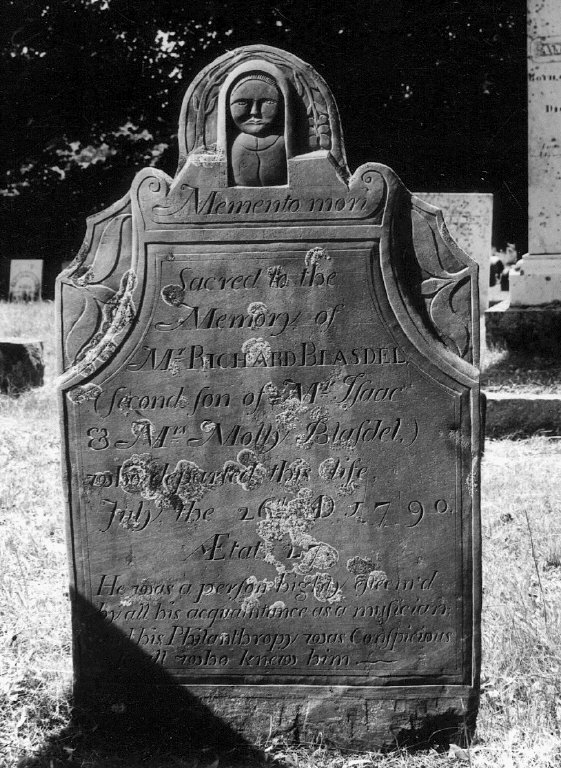 Memento mori
Sacred to the
Memory of
Mr RICHARD BLASDEL
(second ſon of Mr Isaac
& Mrs Molly Blaſdel,)
who departed this life,
July the 26th D. 1790.
Ætat.
He was a perſon highly eſteem'd
by all his acquaintance as a musician
and his Philanthropy was Conſpicious
to all who knew him